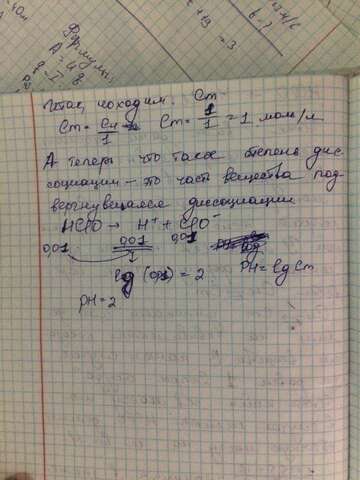 Формулы:
Итак, находим. Cm
Cm = Cн/1 Cm = 1/1 = 1 моль/л
А теперь что такое степень дис
социации – это часть вещества под
вергнувшаяся диссоциации
HClO → H⁺ + ClO⁻
0,01 0,01/1 0,01
lg (0,01) = 2 PH = lg Cm
PH = 2